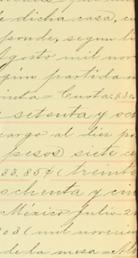 dicha casa, c
ponde, segun l
Agosto mil nov
gun partida n
inta = Custa:
setenta y oc
cargo al tis po
pesos) siete c
33.854 (treint
ochenta y cin
México Julio 2
03 (mil novecien
de la mesa = M